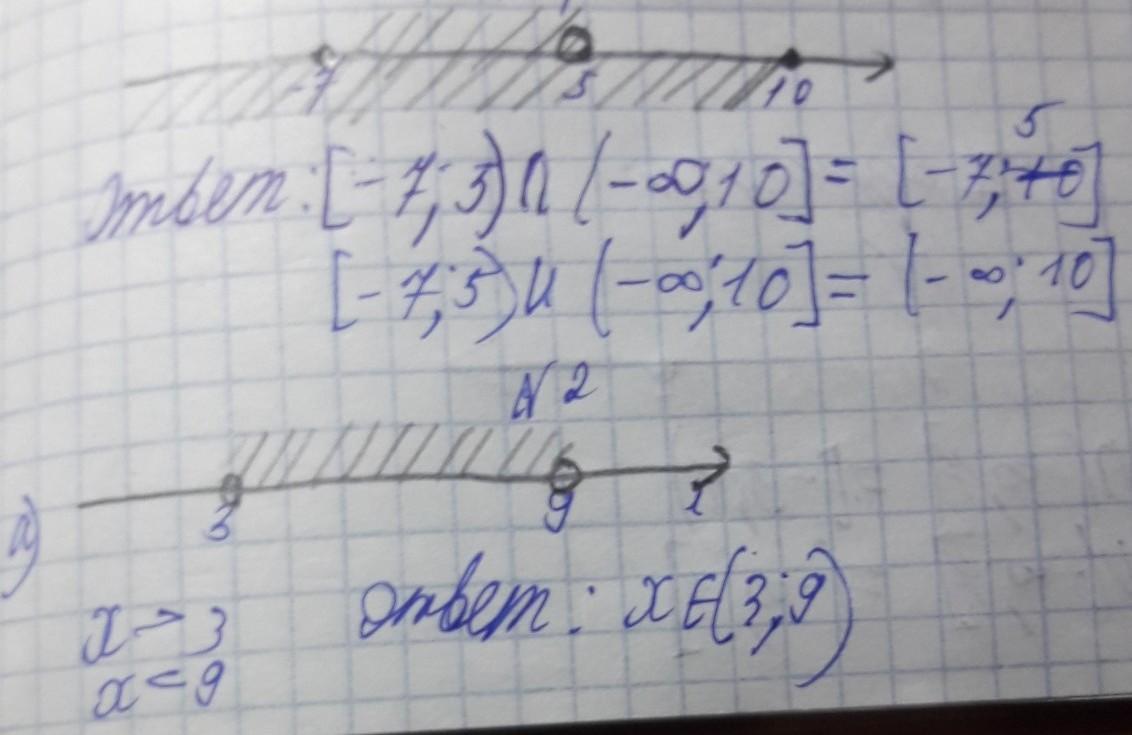 -7 5 10
Ответ: [-7; 5) ∩ (-∞; 10] = [-7; 5]
[-7; 5) ∪ (-∞; 10] = [-∞; 10]
N 2
а) 3 9 x
x > 3
x < 9
Ответ: x ∈ (3; 9)